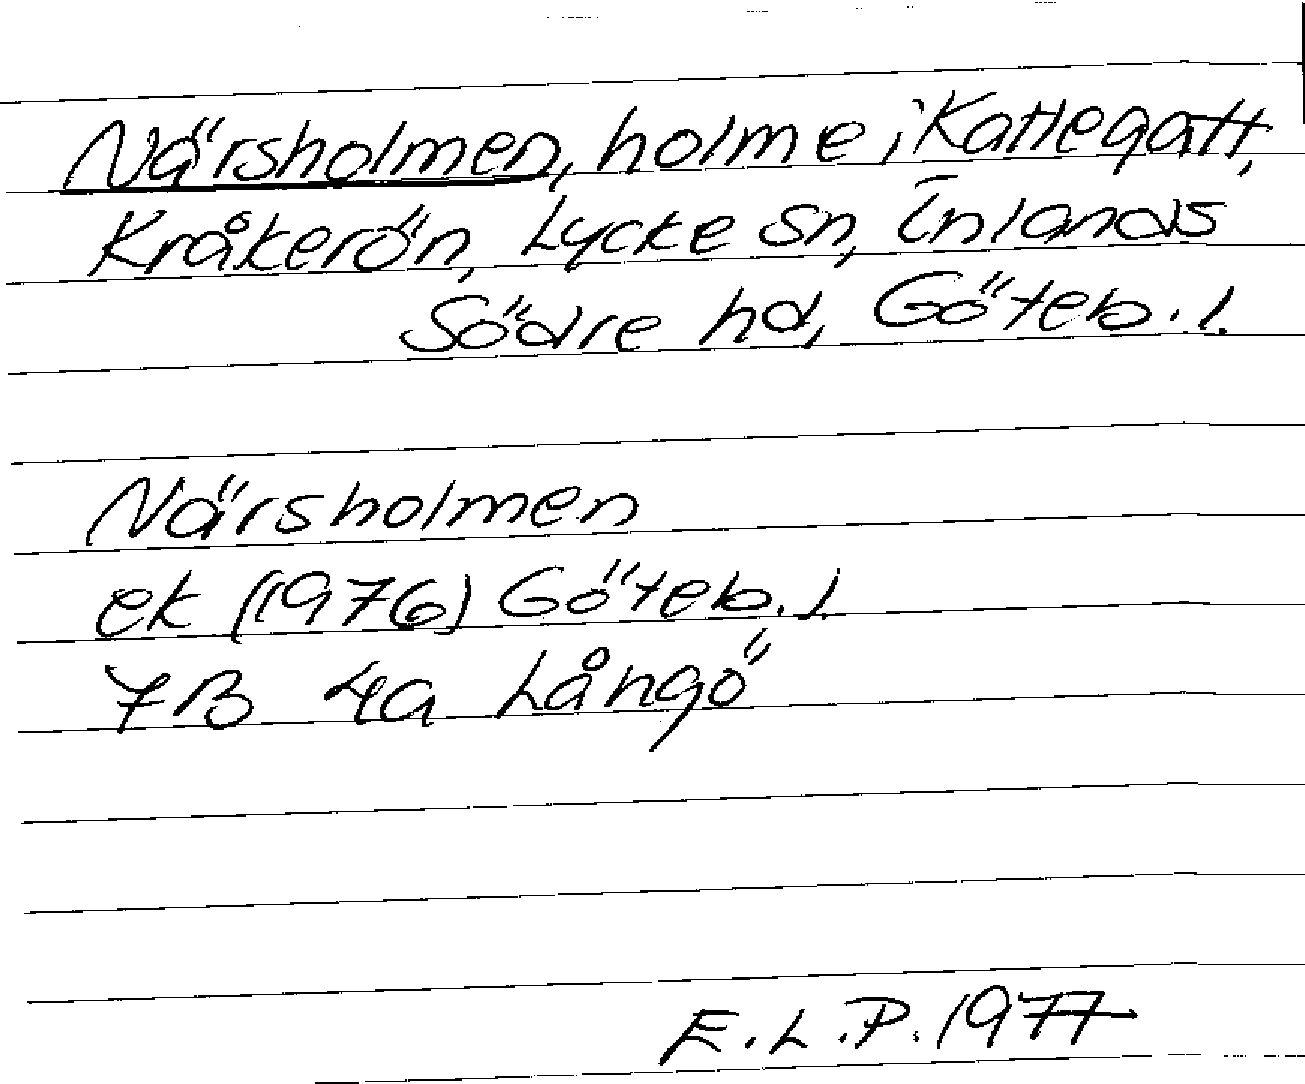 Närsholmen, holme i Kattegatt,
Kråkerön, Lycke sn, Inlands
Södre hd, Göteb. l.
Närsholmen
ek (1976) Göteb. l.
7B 4a Långö
E.L.P. 1977